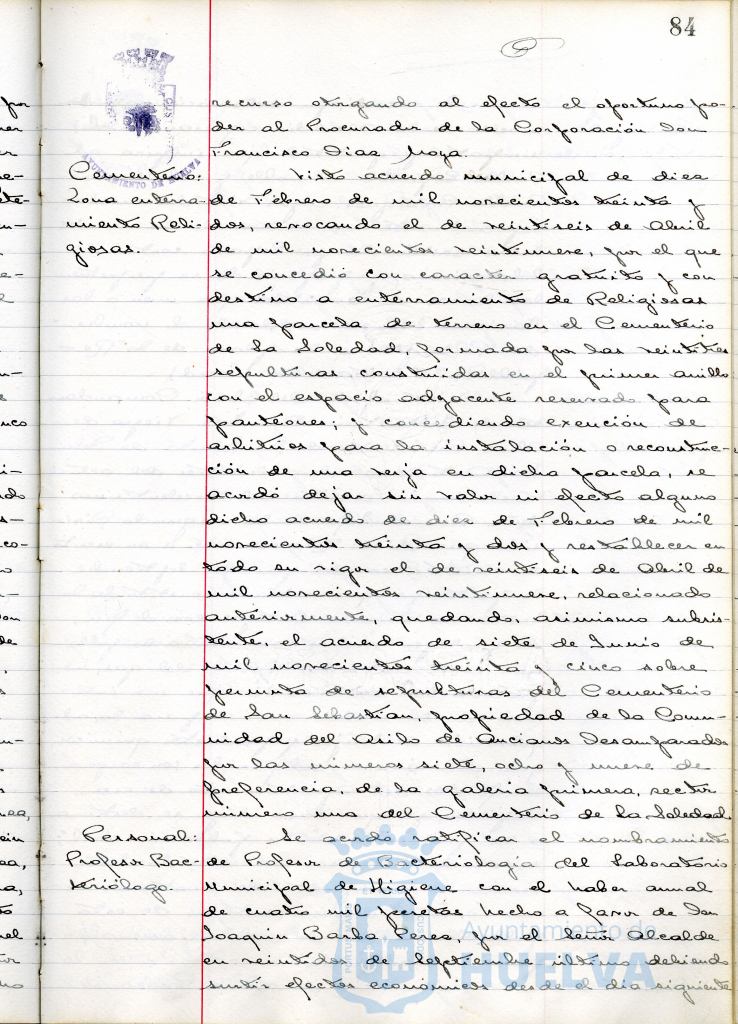 84
recurso otorgando al efecto el oportuno po-
der al Procurador de la Corporación Don
Francisco Díaz Moya.
Cementerio:
Zona enterra-
miento Reli-
giosas.
Visto acuerdo municipal de diez
de Febrero de mil novecientos treinta y
dos, revocando el de veintiseis de Abril
de mil novecientos veintinueve, por el que
se concedió con caracter gratuito y con
destino a enterramiento de Religiosas
una parcela de terreno en el Cementerio
de La Soledad, formada por las veintitres
sepulturas construidas en el primer anillo
con el espacio adyacente reservado para
panteones; y concediendo exención de
arbitrios para la instalación o reconstruc-
ción de una verja en dicha parcela, se
acordó dejar sin valor ni efecto alguno
dicho acuerdo de diez de Febrero de mil
novecientos treinta y dos y restablecer en
todo su vigor el de veintiseis de Abril de
mil novecientos veintinueve, relacionado
anteriormente, quedando, asimismo subsis-
tente, el acuerdo de siete de Junio de
mil novecientos treinta y cinco sobre
permuta de sepulturas del Cementerio
de San Sebastián, propiedad de la Comu-
nidad del Asilo de Ancianos Desamparados
por las números siete, ocho y nueve de
preferencia, de la galería primera, sector
número uno del Cementerio de La Soledad.
Personal:
Profesor Bac-
teriólogo.
Se acordo ratificar el nombramiento
de Profesor de Bacteriología del Laboratorio
Municipal de Higiene con el haber anual
de cuatro mil pesetas hecho a favor de Don
Joaquín Barba Perea, por el Señor Alcalde
en veintidos de Septiembre último debiendo
surtir efectos económicos desde el dia siguiente
AYUNTAMIENTO DE HUELVA
Ayuntamiento de
HUELVA